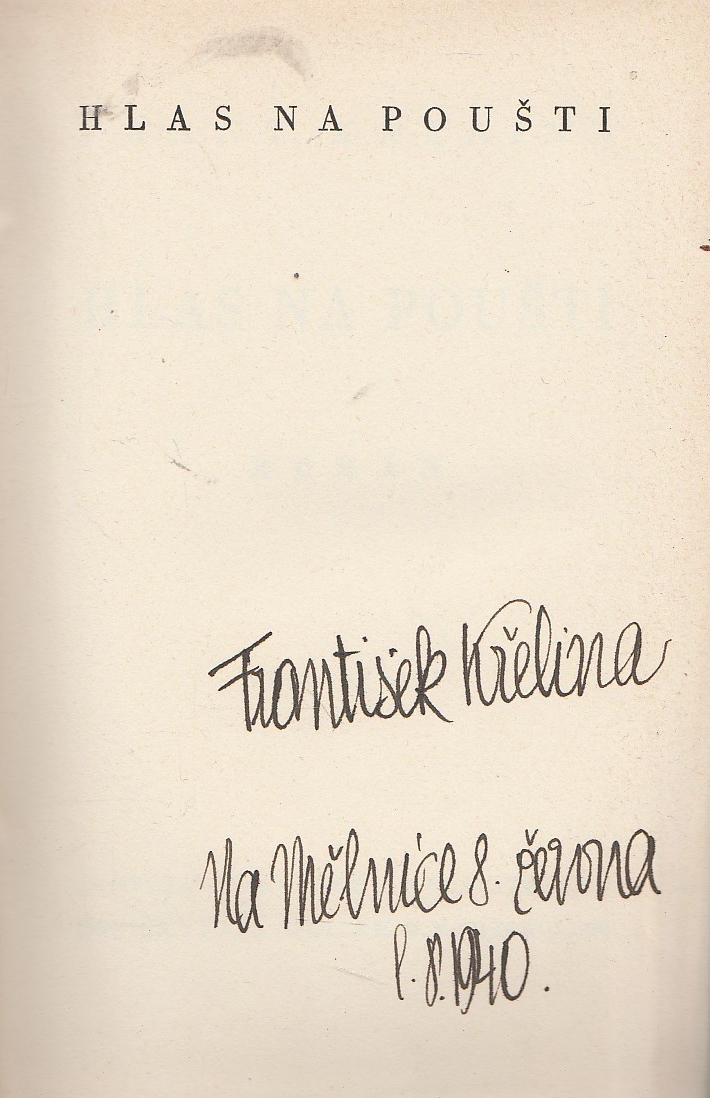 HLAS NA POUŠTI
František Křelina
Na Mělnice 8. června
l. P. 1940.